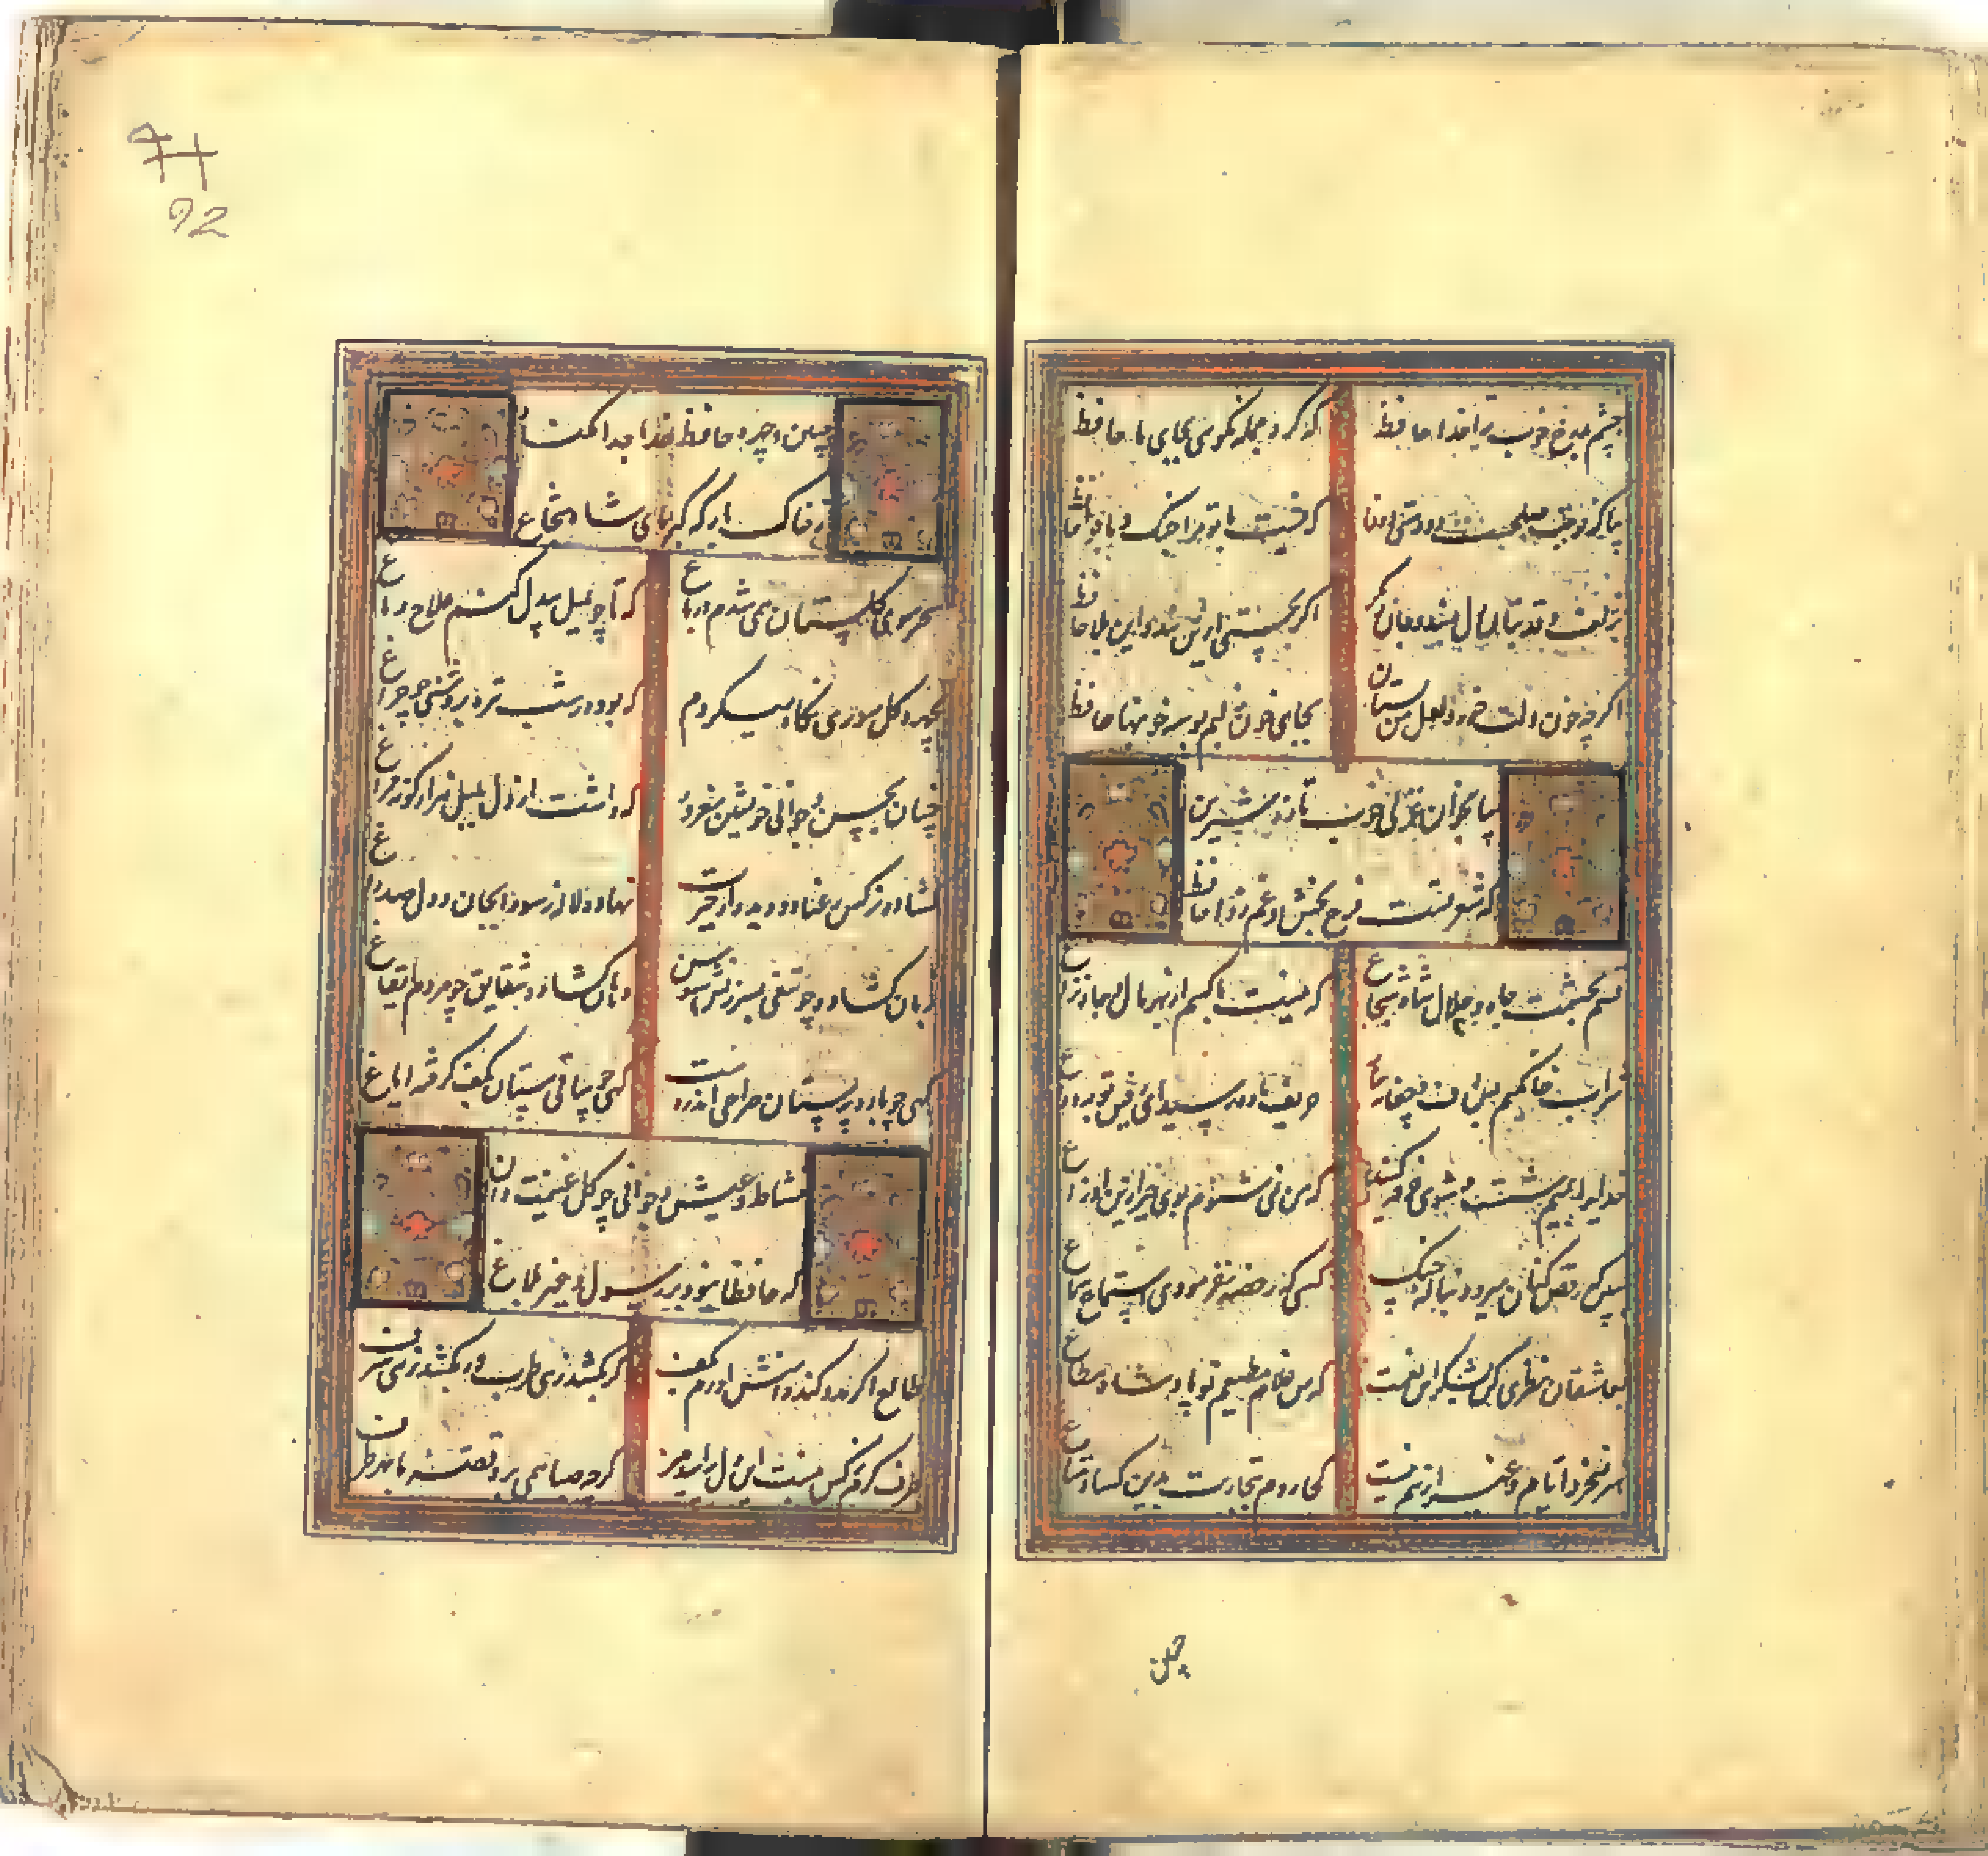 ز چشم بد رخ خوب ترا خدا حافظ
که کرد جمله نکوی بجای ما حافظ
بیا که نوبت صلحست و دوستی و وفا
که نیست با تو مرا جنک و ماجرا حافظ
بزلف و قد بتان دل مبند دیکر
اکر بجستی ازین بلا حافظ
اکرچه خون دلت خورد لعل من بستان
بجای خون ز لبم بوسه خونبها حافظ
بیا بخوان غزلی خوب تازه و شیرین
که شعر تست فرح بخش و غم زدا حافظ
قسم بحشمت و جاه و جلال شاه شجاع
که نیست با کسم از بهر مال و جاه نزاع
شراب خانکیم بس می مغانه
حریف باده رسید ای رفیق توبه وداع
خدایرا بمیم شست و شوی خرقه کنید
که من نمی شنوم بوی خیر ازین اوضاع
ببین که رقص کنان میرود بناله چنک
کسی که رخصه نفرمودی استماع سماع
بعاشقان نظری کن بشکر این نعمت
که من غلام مطیعم تو پادشاه مطاع
هنر نمیخرد ایام و غیر ازینم نیست
کجا روم تجارت بدین کساد متاع
چبین
جبین و چهره حافظ خدا جدا مکناد
ز خاک بارکه کبریای شاه شجاع
سحر سوی کلستان همی شدم در باغ
که تا چو بلبل بیدل کنم علاج دماغ
بچهره کل سوری نکاه میکردم
که بود در شب تیره بروشنی چو چراغ
چنان بحسن و جوانی خویشتن مغرور
که داشت از دل بلبل هزار کونه فراغ
کشاده نرکس رعنا
نهاده لاله ز سودا بجان و دل صد داغ
زبان کشاده چو تیغی بسرزنش سوسن
دهان کشاده شقایق چو مردم ایقاغ
کهی چو باده پرستان صراحی اندر دست
کهی چو ساقی مستان بکف کرفته ایاغ
نشاط و عیش و جوانی چو کل غنیمت دان
که حافظا نبود بر رسول غیر بلاغ
طالع اکر مدد کند دامنش آورم بکف
کر بکشد زهی طرب ور بکشد زهی شرف
طرف کرم ز کس نبست این دل پر امید من
کرچه صبا همی برد قصه ما بهر طرف
92